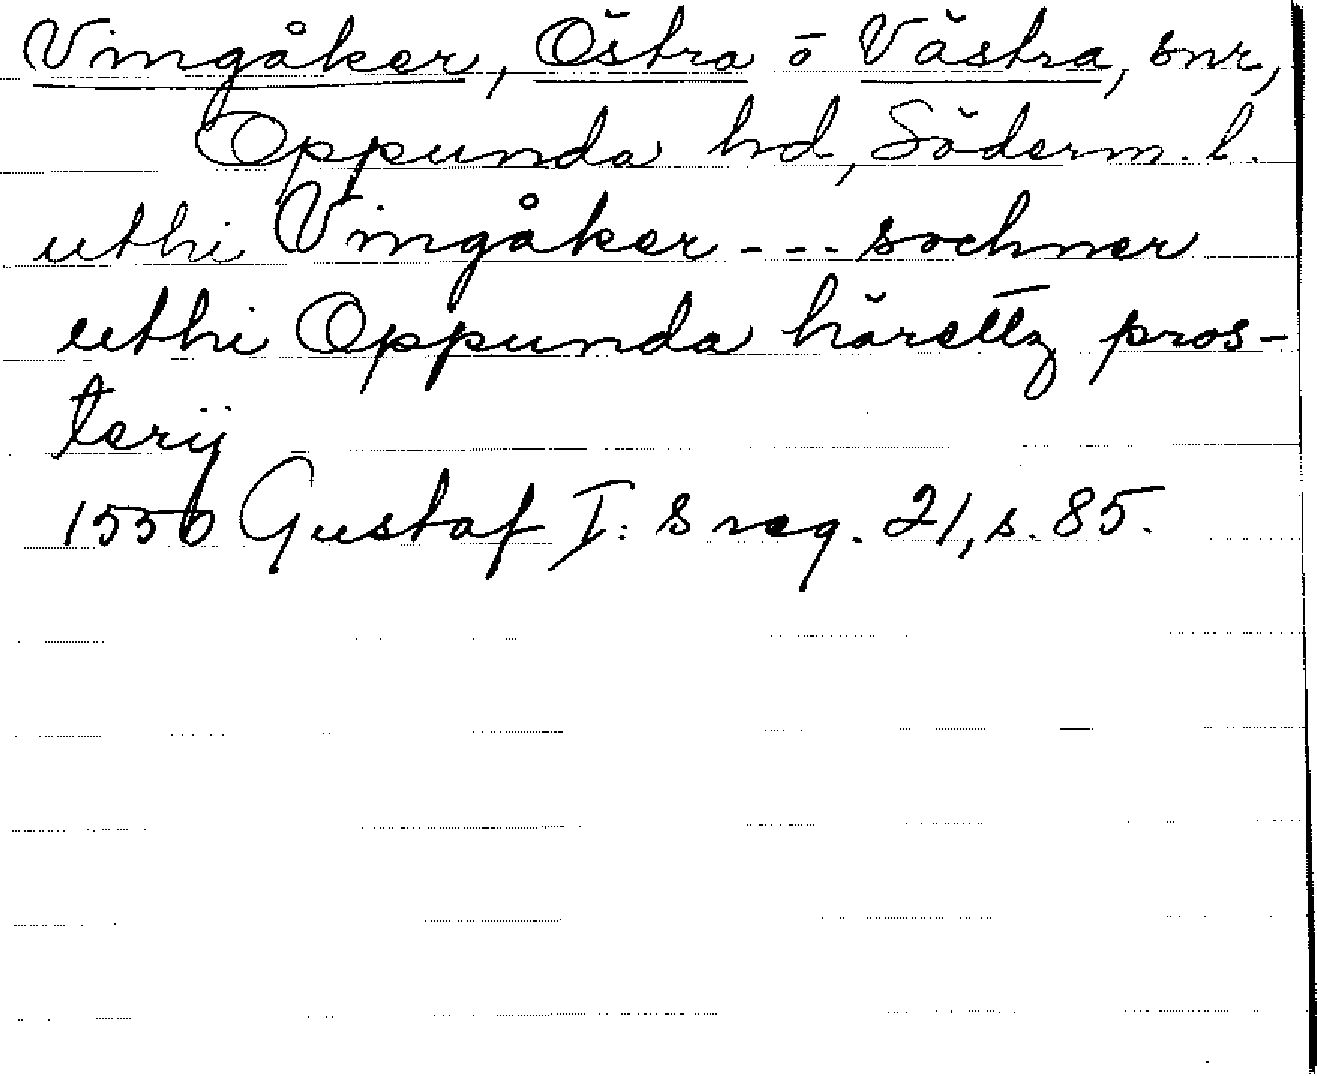 Vingåker, Östra o Västra, snr,
Oppunda hd, Söderm. l.
uthi Vingåker - - - sochner
uthi Oppunda härettz pros-
terij
1550 Gustaf I: s reg. 21, s. 85.